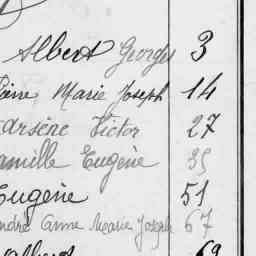 Albert Georges 3
Marie Joseph 14
Arsène Victor 27
Camille Eugène 35
Eugène 51
André Anne Marie Joseph 67
Albert 69